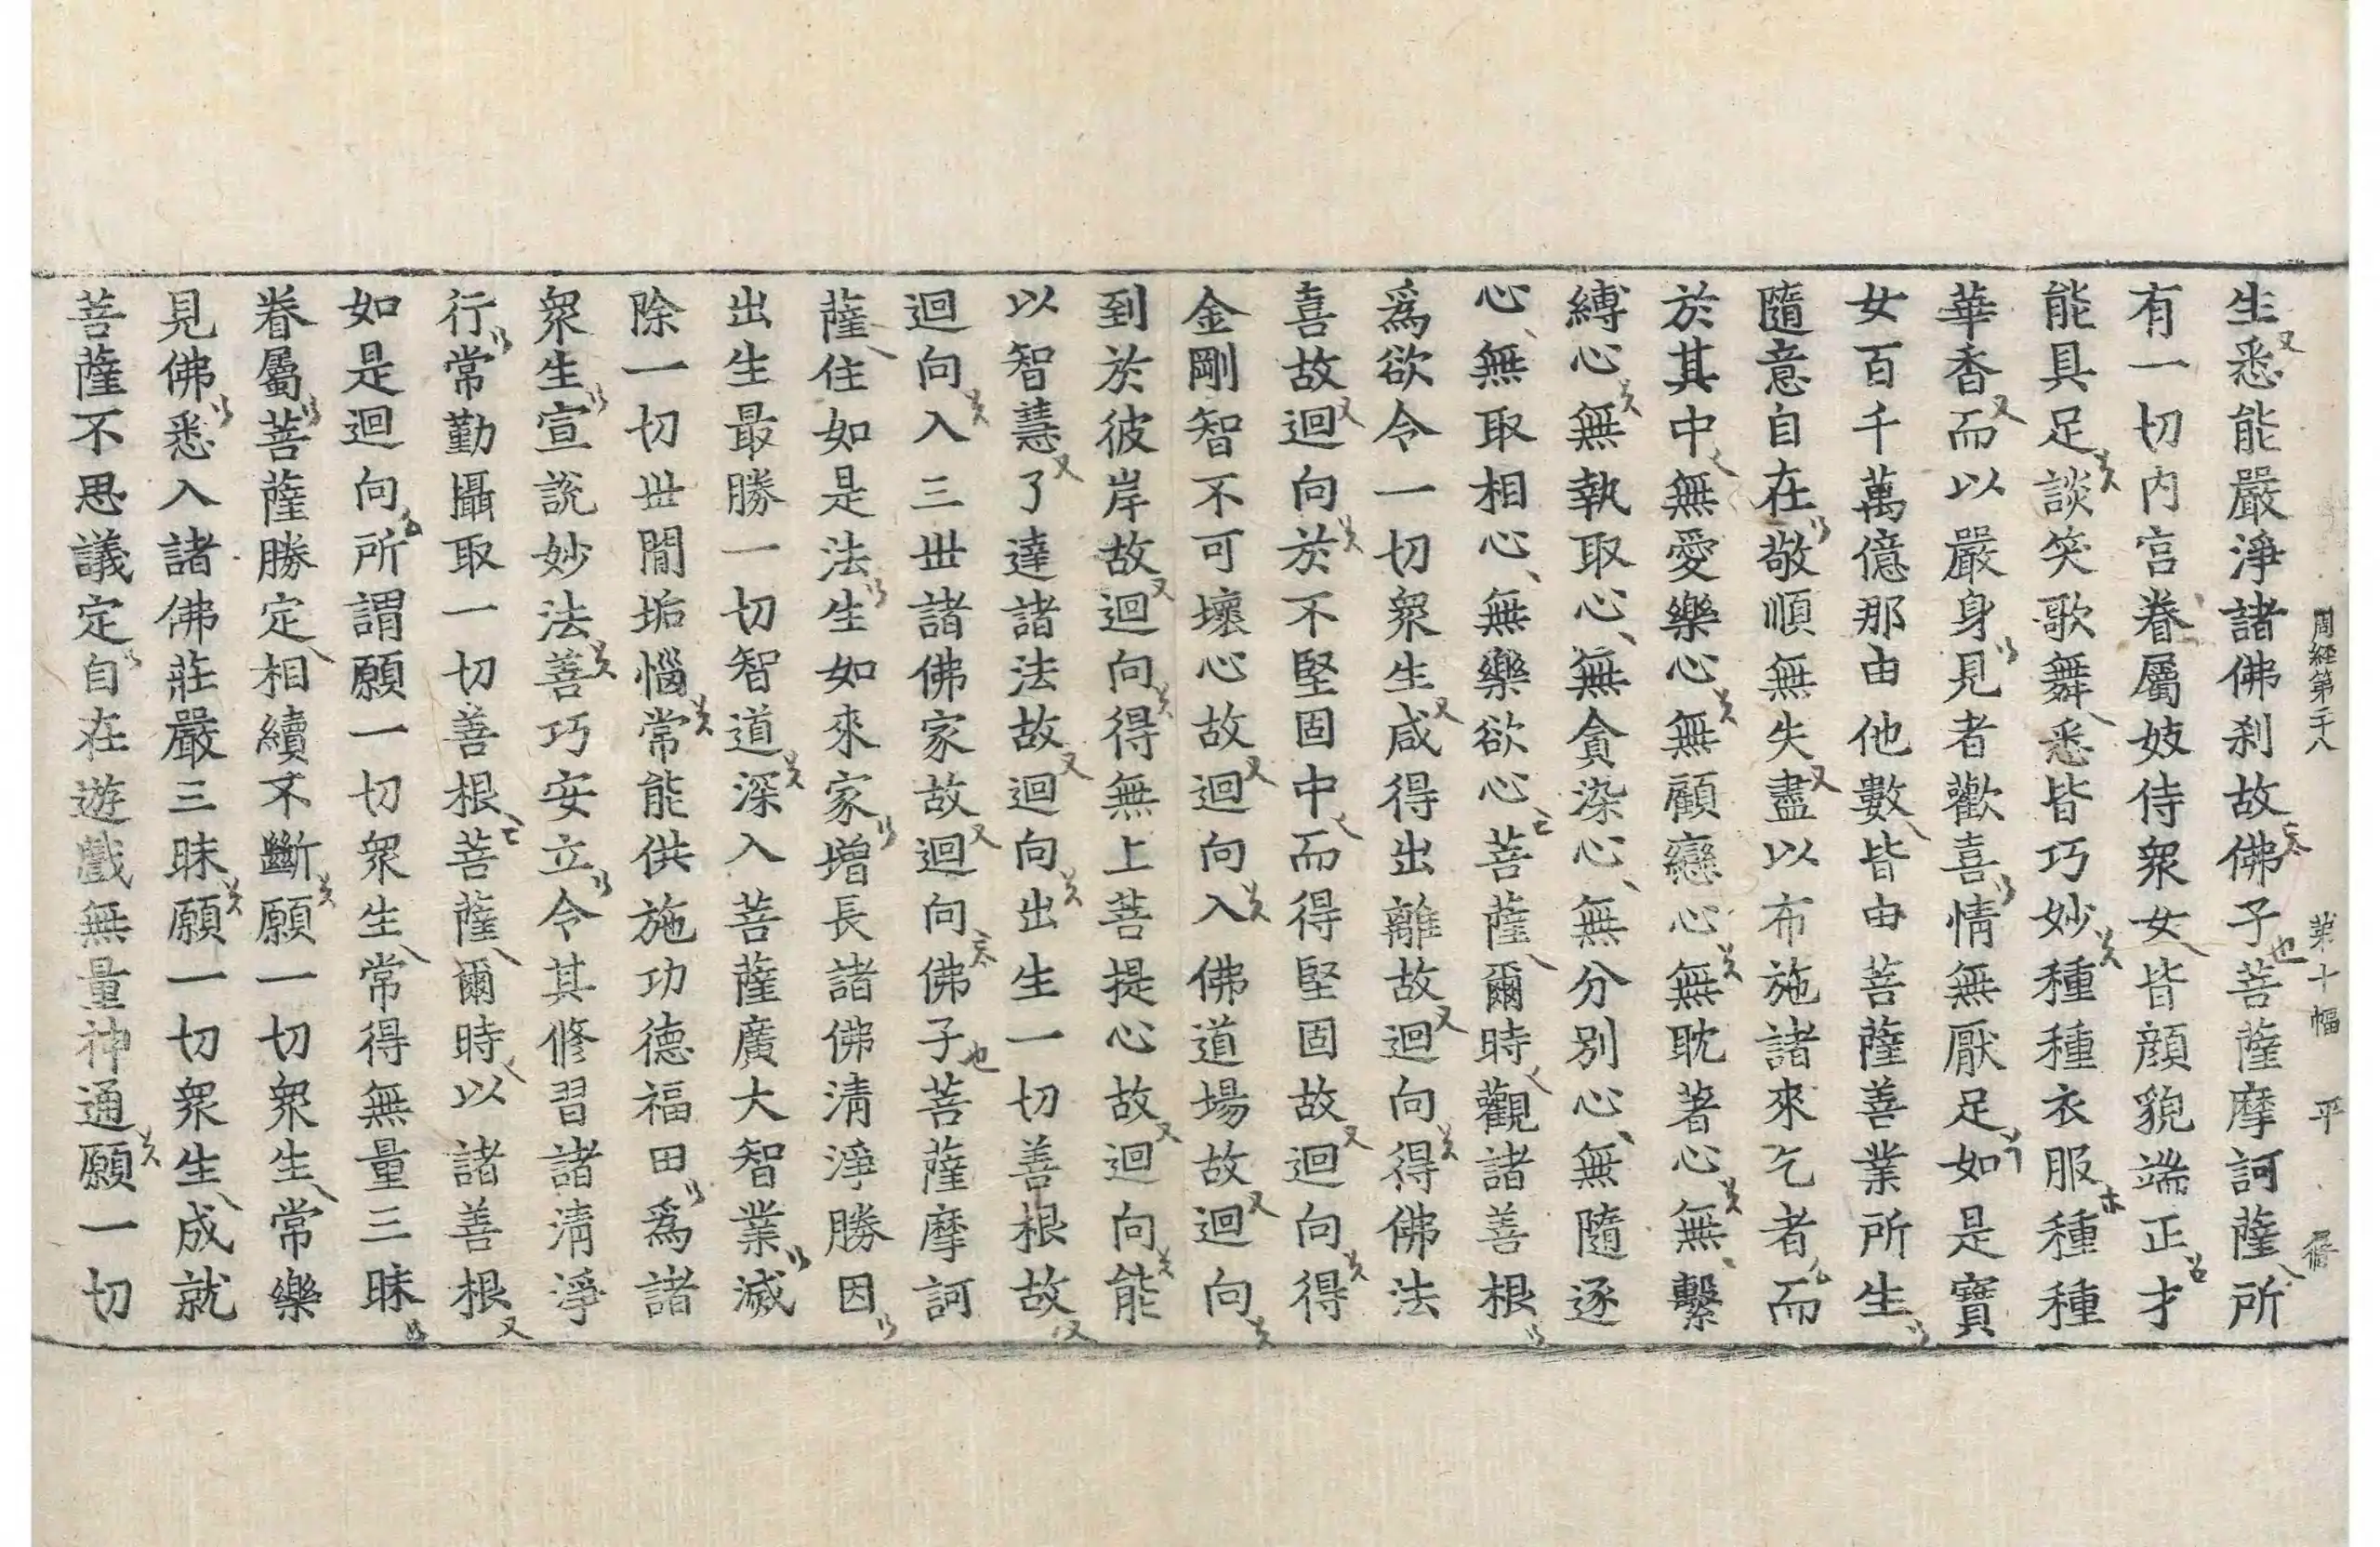 周經第二十八 第十幅 平
生悉能嚴淨諸佛刹故佛子菩薩摩訶薩所
有一切內宮眷屬妓侍衆女皆顔貌端正才
能具足談笑歌舞悉皆巧妙種種衣服種種
華香而以嚴身見者歡喜情無厭足如是寶
女百千萬億那由他數皆由菩薩善業所生
隨意自在敬順無失盡以布施諸來乞者而
於其中無愛樂心無顧戀心無耽著心無繫
縛心無執取心無貪染心無分別心無隨逐
心無取相心無樂欲心菩薩爾時觀諸善根
爲欲令一切衆生咸得出離故迴向得佛法
喜故迴向於不堅固中而得堅固故迴向得
金剛智不可壞心故迴向入佛道場故迴向
到於彼岸故迴向得無上菩提心故迴向能
以智慧了達諸法故迴向出生一切善根故
迴向入三世諸佛家故迴向佛子菩薩摩訶
薩住如是法生如來家增長諸佛淸淨勝因
出生最勝一切智道深入菩薩廣大智業滅
除一切世閒垢惱常能供施功德福田爲諸
衆生宣說妙法善巧安立令其修習諸淸淨
行常勤攝取一切善根菩薩爾時以諸善根
如是迴向所謂願一切衆生常得無量三昧
眷屬菩薩勝定相續不斷願一切衆生常樂
見佛悉入諸佛莊嚴三昧願一切衆生成就
菩薩不思議定自在遊戲無量神通願一切